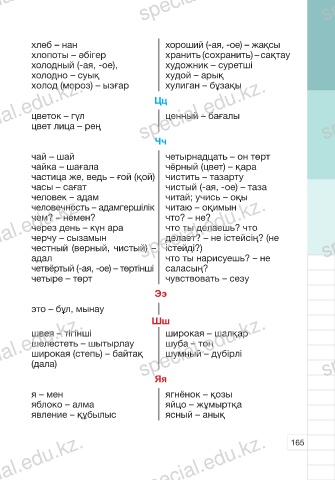 хлеб – нан
хлопоты – әбігер
холодный (-ая, -ое),
холодно – суық
холод (мороз) – ызғар
хороший (-ая, -ое) – жақсы
хранить (сохранить) – сақтау
художник – суретші
худой – арық
хулиган – бұзақы
Цц
цветок – гүл
цвет лица – рең
ценный – бағалы
Чч
чай – шай
чайка – шағала
частица же, ведь – ғой (қой)
часы – сағат
человек – адам
человечность – адамгершілік
чем? – немен?
через день – күн ара
черчу – сызамын
честный (верный, чистый) –
адал
четвёртый (-ая, -ое) – төртінші
четыре – төрт
четырнадцать – он төрт
чёрный (цвет) – қара
чистить – тазарту
чистый (-ая, -ое) – таза
читай; учись – оқы
читаю – оқимын
что? – не?
что ты делаешь? что
делает? – не істейсің? (не
істейді?)
что ты нарисуешь? – не
саласың?
чувствовать – сезу
Ээ
это – бұл, мынау
Шш
швея – тігінші
шелестеть – шытырлау
широкая (степь) – байтақ
(дала)
широкая – шалқар
шуба – тон
шумный – дүбірлі
Яя
я – мен
яблоко – алма
явление – құбылыс
ягнёнок – қозы
яйцо – жұмыртқа
ясный – анық
165
special.edu.kz.